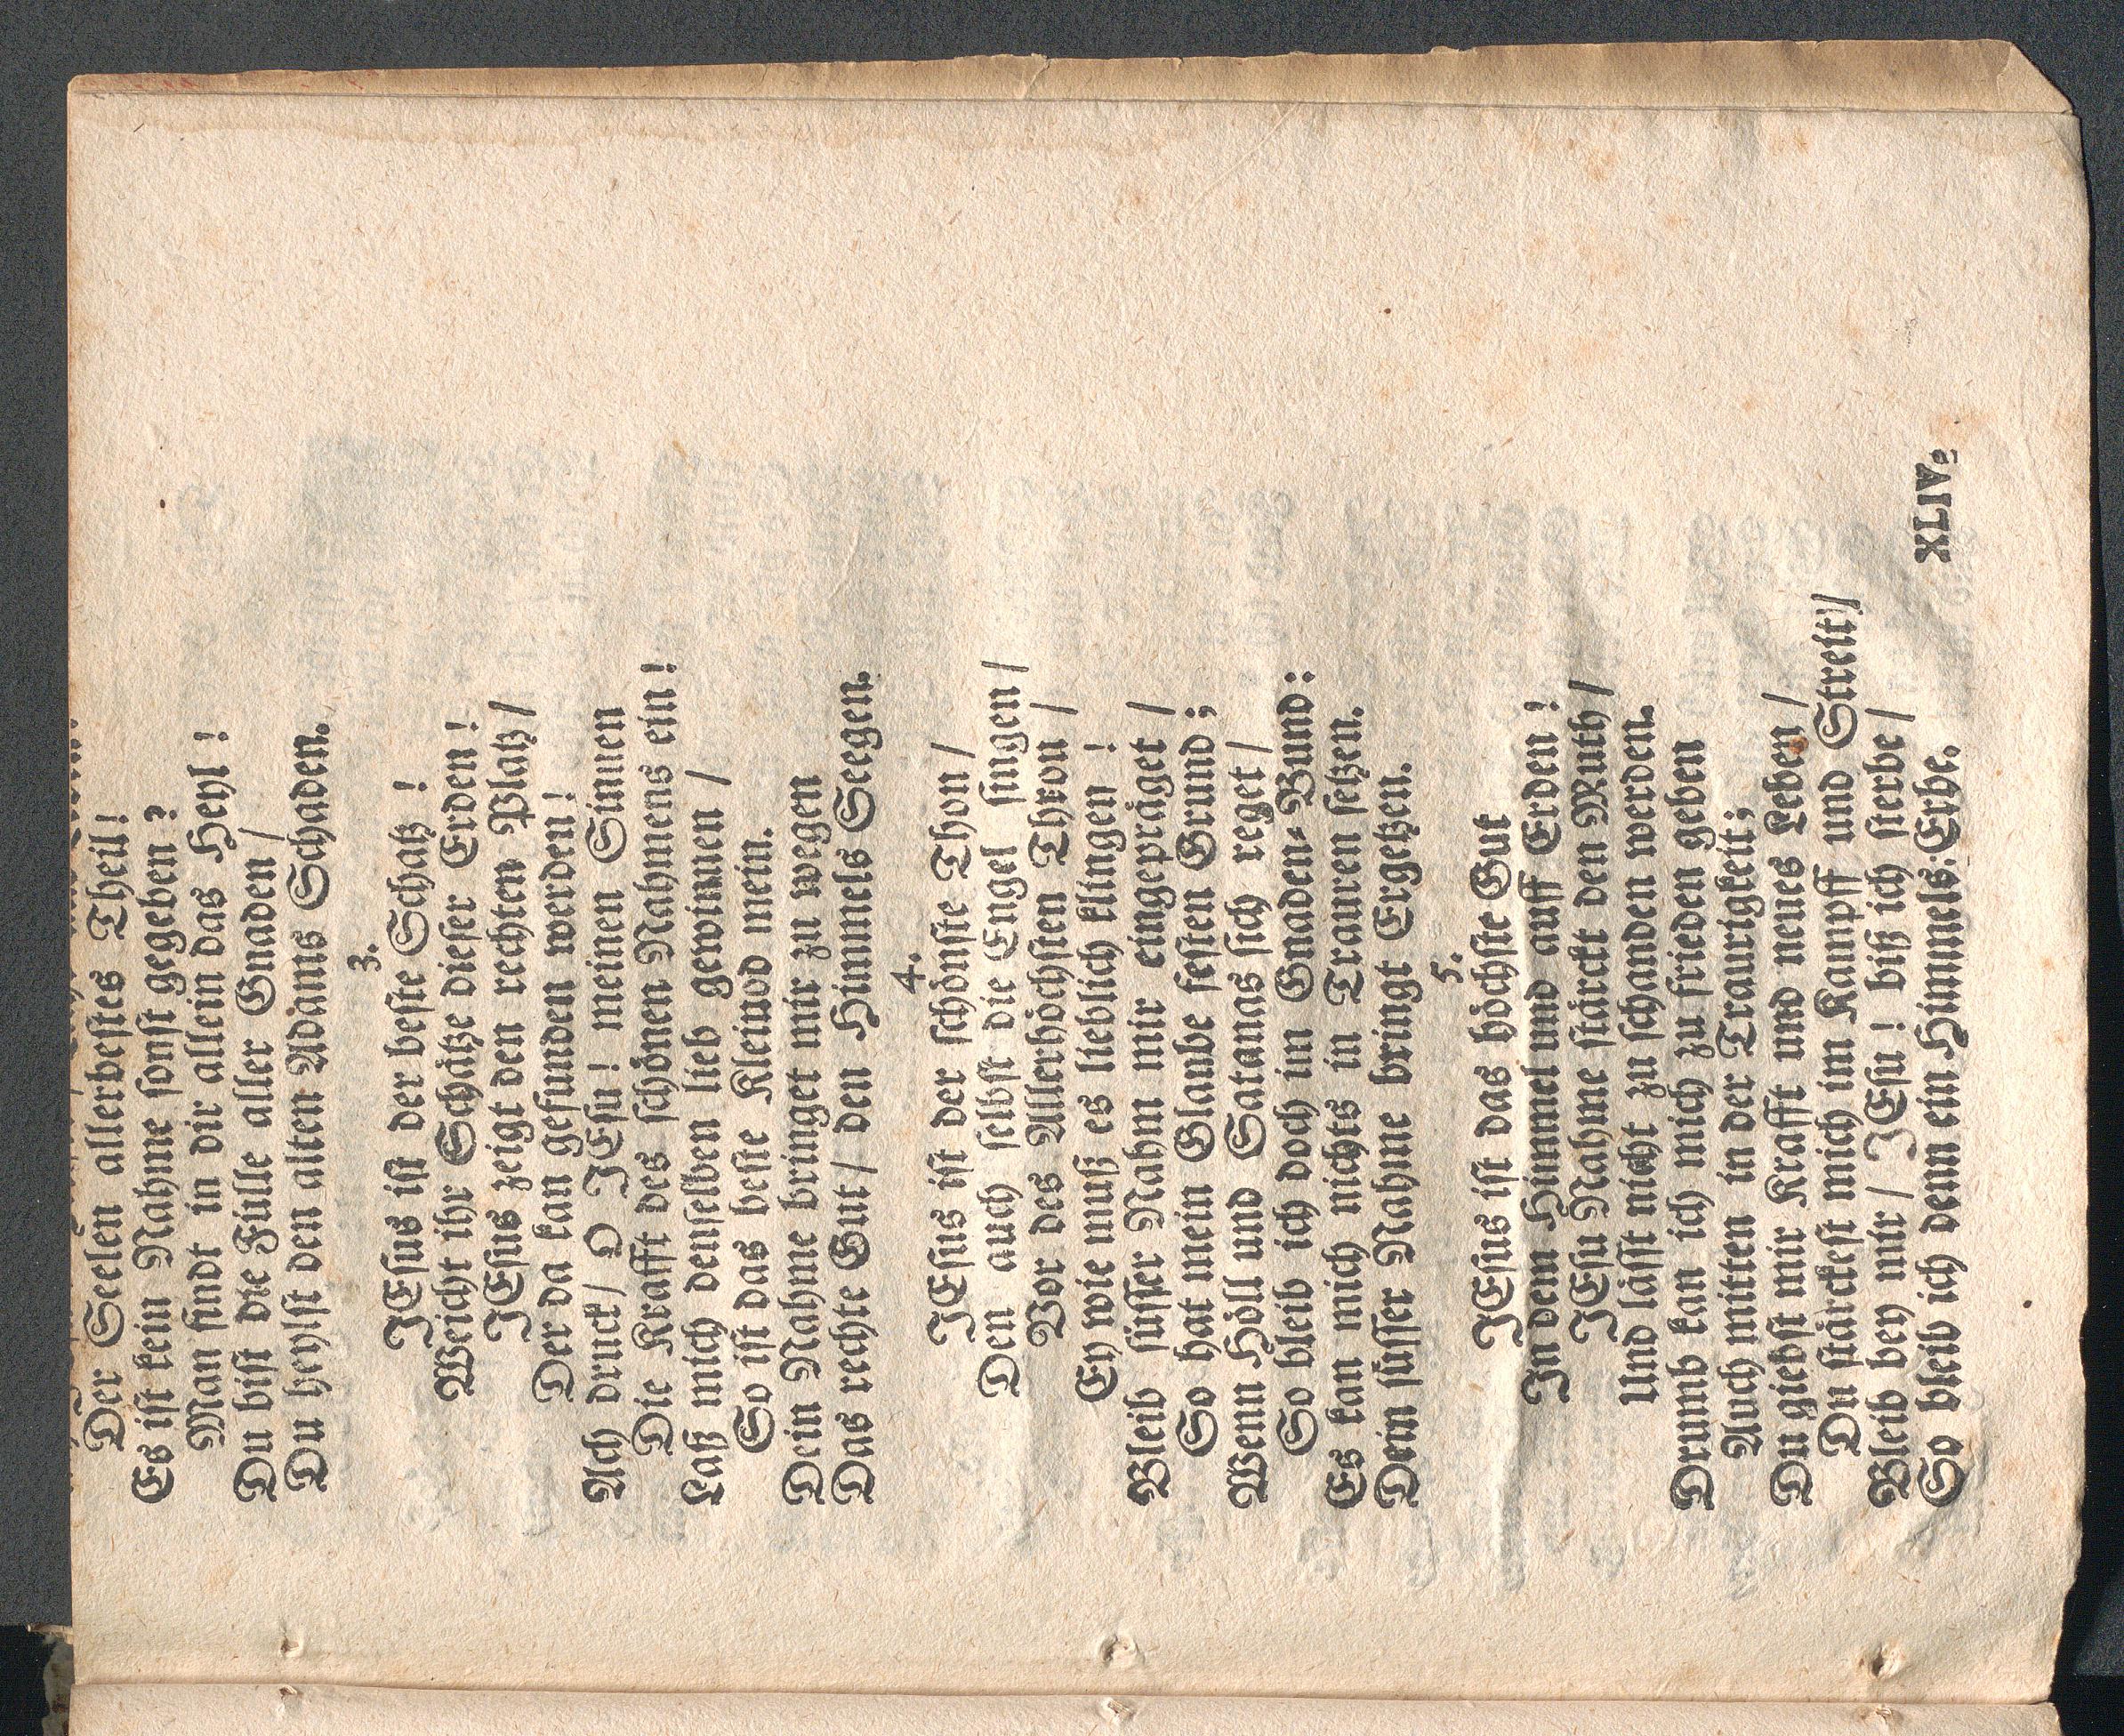 Der Seelen allerbestes Theil!
Es ist kein Nahme sonst gegeben?
Man findt in dir allein das Heyl!
Du bist die Fülle aller Gnaden/
Du heylst den alten Adams Schaden.
3.
JEsus ist der beste Schatz!
Weicht ihr Schätze dieser Erden!
JEsus zeigt den rechten Platz/
Der da kan gefunden werden!
Ach druck/ O JEsu! meinen Sinnen
Die Krafft des schönen Nahmens ein!
Laß mich denselben lieb gewinnen/
So ist das beste Kleinod mein.
Dein Nahme bringet mir zu wegen
Das rechte Gut/ den Himmels Seegen.
4.
JEsus ist der schönste Thon/
Den auch selbst die Engel singen/
Vor des Allerhöchsten Thron/
Ey wie muß es lieblich klingen!
Bleib süsser Nahm mir eingepräget/
So hat mein Glaube festen Grund;
Wenn Höll und Satanas sich reget/
So bleib ich doch im Gnaden-Bund:
Es kan mich nichts in Trauren setzen.
Dein süsser Nahme bringt Ergetzen.
5.
JEsus ist das höchste Gut
In dem Himmel und auff Erden!
JEsu Nahme stärckt den Muth/
Und lässt nicht zu schanden werden.
Drumb kan ich mich zu frieden geben
Auch mitten in der Traurigkeit;
Du giebst mir Krafft und neues Leben/
Du stärckest mich im Kampff und Streit/
Bleib bey mir/ JEsu! biß ich sterbe/
So bleib ich denn ein Himmels-Erbe.
XLIV.